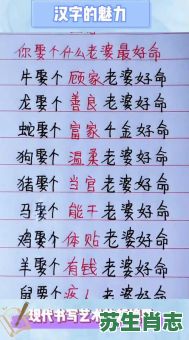 汉字的魅力
你娶个什么老婆最好命
牛娶个顾家老婆好命
龙娶个善良老婆好命
蛇娶富家千金好命
狗娶个温柔老婆好命
猪娶个当官老婆好命
马娶个能干老婆好命
鸡娶个体贴老婆好命
羊娶个有钱老婆好命
鼠娶个疼人老婆好命
现代书写艺术
苏生肖志